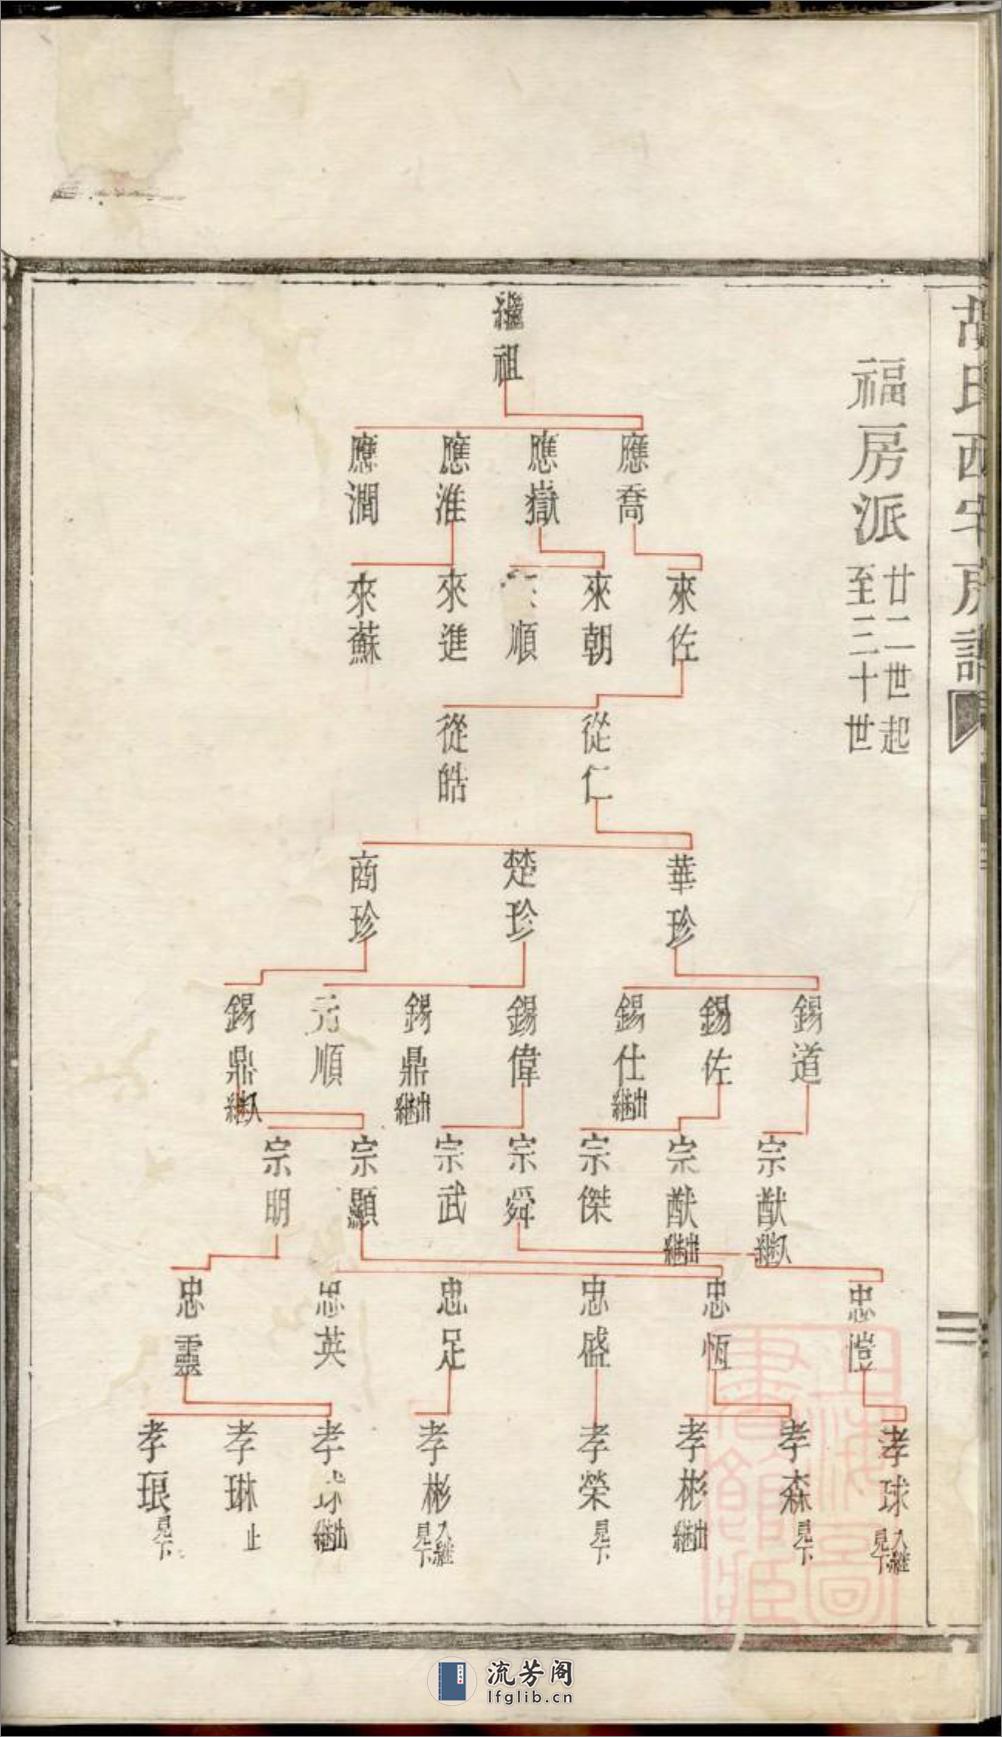 胡氏西宅房譜
福房派
廿二世起
至三十世
繼祖
應喬
應嶽
應淮
應澗
來佐
來朝
順
來進
來蘇
從仁
從皓
華珍
楚珍
商珍
錫道
錫佐
錫仕 出繼
錫偉
錫鼎 出繼
元順
錫鼎 入繼
宗猷 入繼
宗猷 出繼
宗傑
宗舜
宗武
宗顯
宗明
忠愷
忠恆
忠盛
忠足
忠英
忠靈
孝球 入繼 見下
孝森 見下
孝彬 出繼
孝榮 見下
孝彬 入繼 見下
孝球 出繼
孝琳 止
孝琅 見下
三
上海圖
書館藏
流芳阁
lfglib.cn